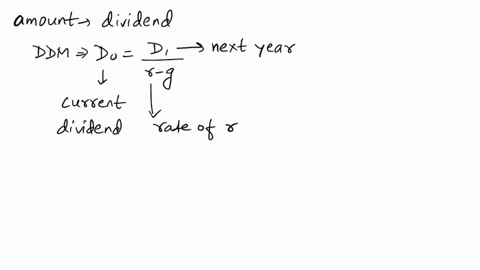 amount → dividend
DDM ⇒ D₀ = D₁ / r-g → next year
↓ ↓
current
dividend rate of r